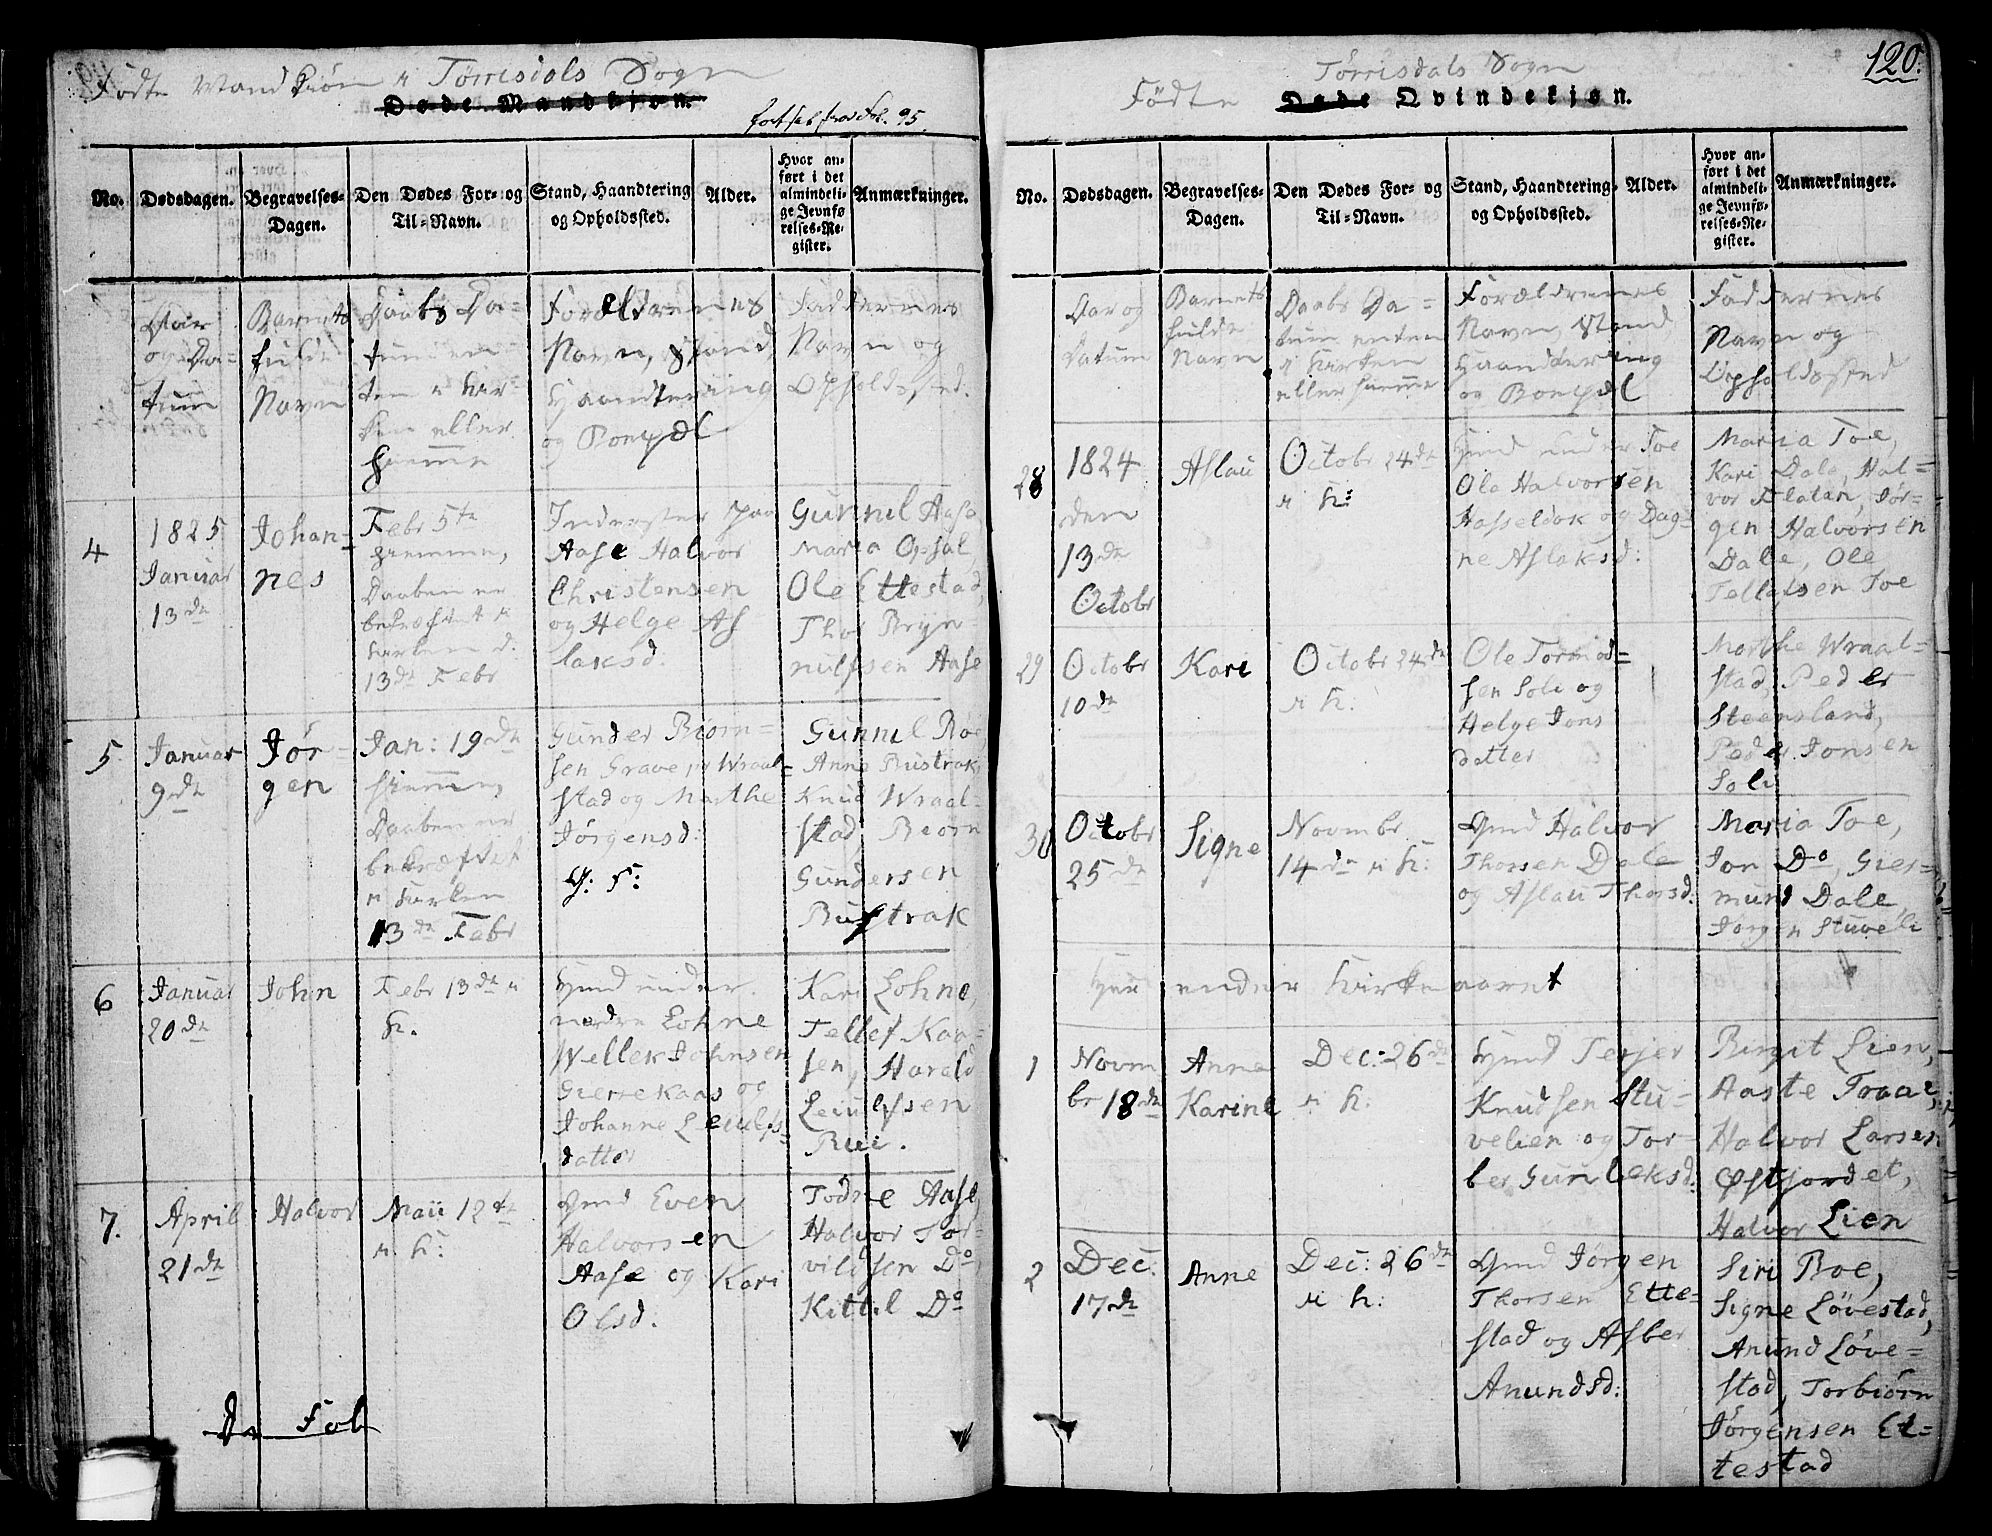 Fødte Mandkiøn i Tørrisdals Sogn
Døde Mandkjøn.
fortsat fra Fol. 95.
No.
Dødsdagen.
Begravelses-
Dagen.
Den Dødes For- og
Til-Navn.
Stand, Haandtering
og Opholdssted.
Alder.
Hvor an-
ført i det
almindeli-
ge Jevnfø
relses-Re-
gister.
Anmærkninger.
Aar
og Da-
tum
Barnets
fulde
Navn
Daabs Da-
tum en-
ten i Kir-
ken eller
hiemme
Forældrenes
Navn, Stand
Haandtering
og Boepæl
Faddernes
Navn og
Opholdssted.
4
1825
Januar
13de
Johan-
nes
Febr 5te
hiemme,
Daaben er
bekræftet i
Kirken d.
13de Febr
Inderster paa
Aase Halvor
Christensen
og Helge As-
laksd.
Gunnil Aase
Maria Opsal,
Ole Ettestad,
Thor Bryn-
nulfsen Aase
5.
Januar
9de
Jør-
gen
Jan: 19de
hiemme,
Daaben er
bekræftet
i Kirken
13de Febr
Gunder Biørn-
sen Grave pr Wraal-
stad og Marthe
Jørgensd:
G: F:
Gunnil Roe,
Anne Bustrak,
Knud Wraal-
stad, Biørn
Gundersen
Bustrak
6
Januar
20de
John
Febr 13de i
K.
Gmd under
nordre Lohne
Wellek Johnsen
Gierrekaas og
Johanne Leiulfs-
datter
Kari Lohne,
Tellef Kaa-
sen, Harald
Leiulfsen
Rui.
7.
April
21de
Halvor
Maii 12te
i K:
Gmd Even
Halvorsen
Aase og Kari
Olsd.
Todne Aase,
Halvor Tor-
vildsen Do,
Kittil Do
120.
Tørrisdals Sogn
Fødte Døde Qvindekjøn.
No.
Dødsdagen.
Begravelses-
Dagen.
Den Dødes For- og
Til-Navn.
Stand, Haandtering
og Opholdssted.
Alder.
Hvor an-
ført i det
almindeli-
ge Jevnfø-
relses-Re-
gister.
Anmærkninger.
Aar og
Datum
Barnets
fulde
Navn
Daabs Da-
tum enten
i Kirken
eller hiemme
Forældrenes
Navn, Stand
Haandtering
og Boepæl
Faddernes
Navn og
Opholdssted
28
1824
den
13de
Octobr
Aslau
Octobr 24de
i K:
Hmd under Toe
Ole Halvorsen
Hasseldok og Dag-
ne Aslaksd:
Maria Toe,
Kari Dale, Hal-
vor Flatan, Jør-
gen Halvorsen
Dale, Ole
Tellefsen Toe
29
Octobr
10de
Kari
Octobr 24de
i K:
Ole Tormod-
sen Soli og
Helge Jons
datter
Marthe Wraal-
stad, Peder
Steensland,
Peder Jonsen
Soli
30
Octobr
25de
Signe
Novmbr
14de i K:
Gmd Halvor
Thorsen Dale
og Aslau Thorsd:
Maria Toe,
Jon Do, Gier-
mund Dale,
Jørgen Stuveli
Her ender Kirkeaaret
1
Novm
br 18de
Anne
Karine
Dec: 26de
i K:
Gmd Terjer
Knudsen Stu-
velien og Tor-
ber Gunleksd:
Birgit Lien,
Aaste Traae,
Halvor Larsen
Østjordet,
Halvor Lien
2
Dec:
17de
Anne
Dec: 26de
i K:
Gmd Jørgen
Thorsen Ette-
stad og Asber
Anundsd:
Siri Boe,
Signe Løvestad,
Anund Løve-
stad, Torbiørn
Jørgensen Et-
testad